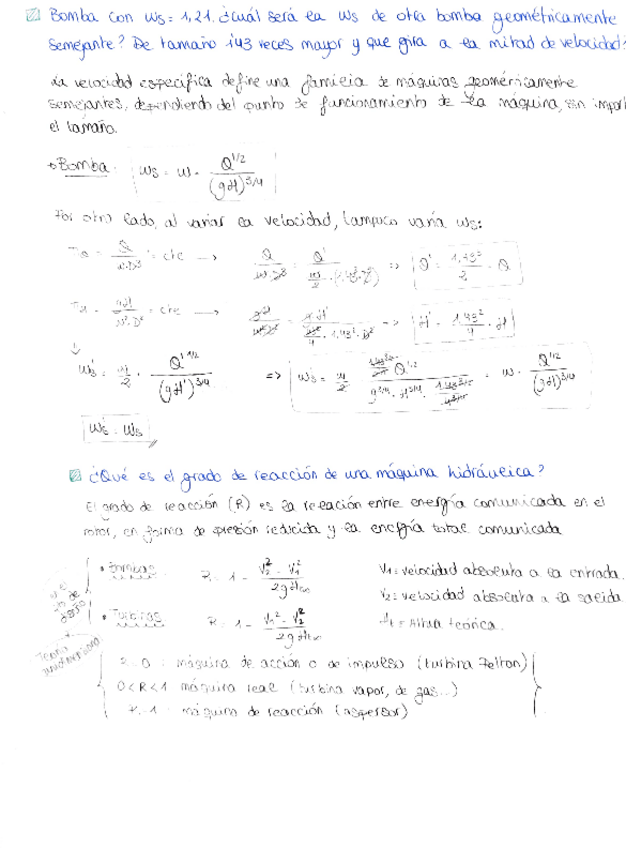 Bomba con ws = 1,21. ¿cuál será la ws de otra bomba geométricamente
semejante? De tamaño 1'43 veces mayor y que gira a la mitad de velocidad?
La velocidad específica define una familia de máquinas geométricamente
semejantes, dependiendo del punto de funcionamiento de la máquina, sin import
el tamaño.
→ Bomba: ws = w · Q^1/2 / (gH)^3/4
Por otro lado, al variar la velocidad, tampoco varía ws:
= cte → => Q' = · Q
= cte → => H' = · H
ws' = w/2 · Q'^1/2 / (gH')^3/4 => ws' = w/2 = w · Q^1/2 / (gH)^3/4
ws' = ws
¿Qué es el grado de reacción de una máquina hidráulica?
El grado de reacción (R) es la relación entre energía comunicada en el
rotor, en forma de presión reducida y la energía total comunicada
• Bombas R = 1 - V2² - V1² / 2gH∞ V1 = velocidad absoluta a la entrada.
V2 = velocidad absoluta a la salida
• Turbinas R = 1 - V1² - V2² / 2gH∞ Ht = Altura teórica.
R = 0 : máquina de acción o de impulso (turbina Pelton)
0 < R < 1 máquina real (turbina vapor, de gas...)
R = 1 : máquina de reacción (aspersor)